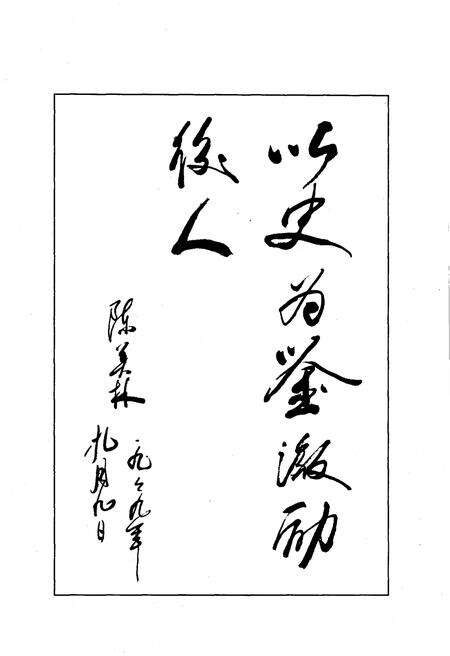 以史为鉴激励
後人
陈美林
一九々九年
九月九日